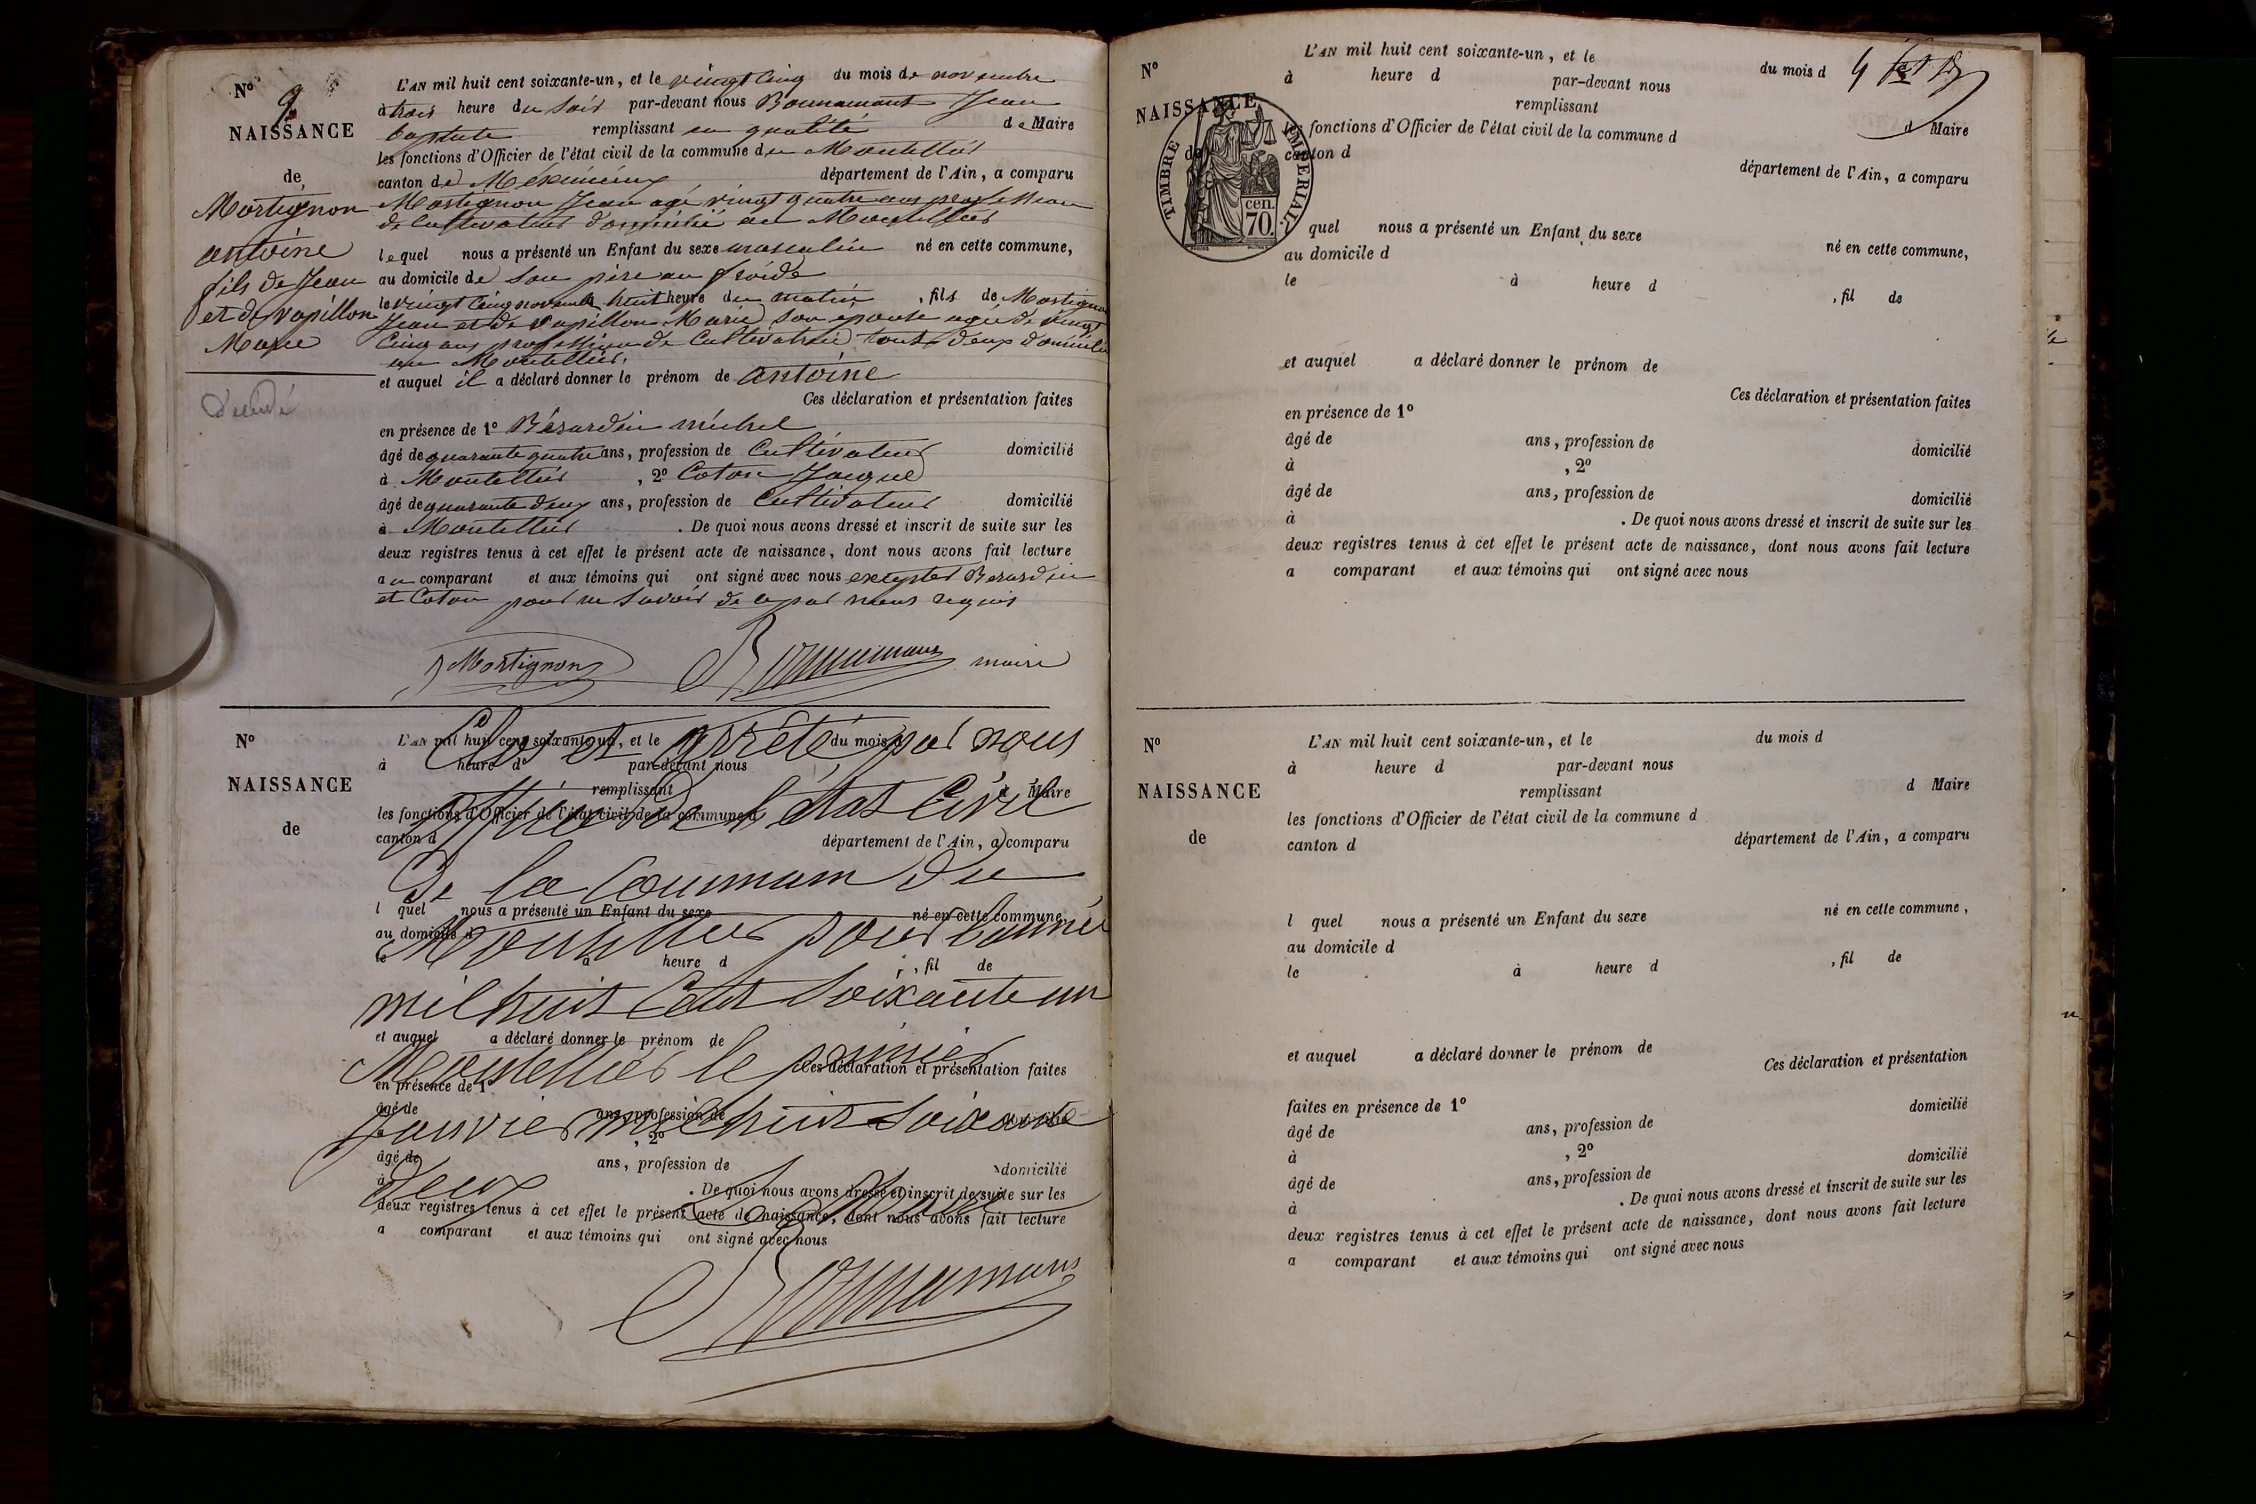 N° 9
NAISSANCE
de
Mortignon
antoine
fils de Jean
et de vapillon
Marie
décédé
L'AN mil huit cent soixante-un, et le vingt cinq du mois de novembre
à trois heure du soir par-devant nous Bonnamant Jean
baptiste remplissant en qualité de Maire
les fonctions d'Officier de l'état civil de la commune du Montellier
canton de Méximieux département de l'Ain, a comparu
Mortignon Jean agé vingt quatre ans profession
de Cultivateur domicilié au Montellier
lequel nous a présenté un Enfant du sexe masculin né en cette commune,
au domicile de son père au froide
le vingt cinq novembre huit heure du matin, fils de Mortignon
Jean et de vapillon Marie son epouse agée de vingt
cinq ans profession de Cultivatrice tout deux domicilié
au Montellier.
et auquel il a déclaré donner le prénom de antoine
Ces déclaration et présentation faites
en présence de 1° Bérardin michel
âgé de quarante quatre ans, profession de Cultivateur domicilié
à Montellier, 2° Coton Jacque
âgé de quarante deux ans, profession de Cultivateur domicilié
à Montellier. De quoi nous avons dressé et inscrit de suite sur les
deux registres tenus à cet effet le présent acte de naissance, dont nous avons fait lecture
au comparant et aux témoins qui ont signé avec nous excepter Berardin
et Coton pour ne savoir de ce par nous requis
Mortignon Bonnamant maire
N°
NAISSANCE
de
L'AN mil huit cent soixante-un, et le du mois d
Clos et arrêté par nous
à heure d par-devant nous
remplissant d Maire
officier de l'état Civil
les fonctions d'Officier de l'état civil de la commune d
canton d département de l'Ain, a comparu
De la Commune du
l quel nous a présenté un Enfant du sexe né en cette commune,
au domicile d
Montellier pour l'année
le à heure d, fil de
mil huit Cent Soixante un
et auquel a déclaré donner le prénom de
Montellier le premier
Ces déclaration et présentation faites
en présence de 1°
âgé de ans, profession de domicilié
Janvier mil huit Soixante
à, 2°
âgé de ans, profession de domicilié
deux
à. De quoi nous avons dressé et inscrit de suite sur les
Le Maire
deux registres tenus à cet effet le présent acte de naissance, dont nous avons fait lecture
a comparant et aux témoins qui ont signé avec nous
Bonnamant
N°
NAISSANCE
de
TIMBRE IMPERIAL
70 cen.
L'AN mil huit cent soixante-un, et le du mois d
à heure d par-devant nous
remplissant d Maire
les fonctions d'Officier de l'état civil de la commune d
canton d département de l'Ain, a comparu
quel nous a présenté un Enfant du sexe né en cette commune,
au domicile d
le à heure d, fil de
et auquel a déclaré donner le prénom de
Ces déclaration et présentation faites
en présence de 1°
âgé de ans, profession de domicilié
à, 2°
âgé de ans, profession de domicilié
à. De quoi nous avons dressé et inscrit de suite sur les
deux registres tenus à cet effet le présent acte de naissance, dont nous avons fait lecture
a comparant et aux témoins qui ont signé avec nous
N°
NAISSANCE
de
L'AN mil huit cent soixante-un, et le du mois d
à heure d par-devant nous
remplissant d Maire
les fonctions d'Officier de l'état civil de la commune d
canton d département de l'Ain, a comparu
l quel nous a présenté un Enfant du sexe né en cette commune,
au domicile d
le à heure d, fil de
et auquel a déclaré donner le prénom de
Ces déclaration et présentation
faites en présence de 1° domicilié
âgé de ans, profession de
à, 2° domicilié
âgé de ans, profession de
à. De quoi nous avons dressé et inscrit de suite sur les
deux registres tenus à cet effet le présent acte de naissance, dont nous avons fait lecture
a comparant et aux témoins qui ont signé avec nous